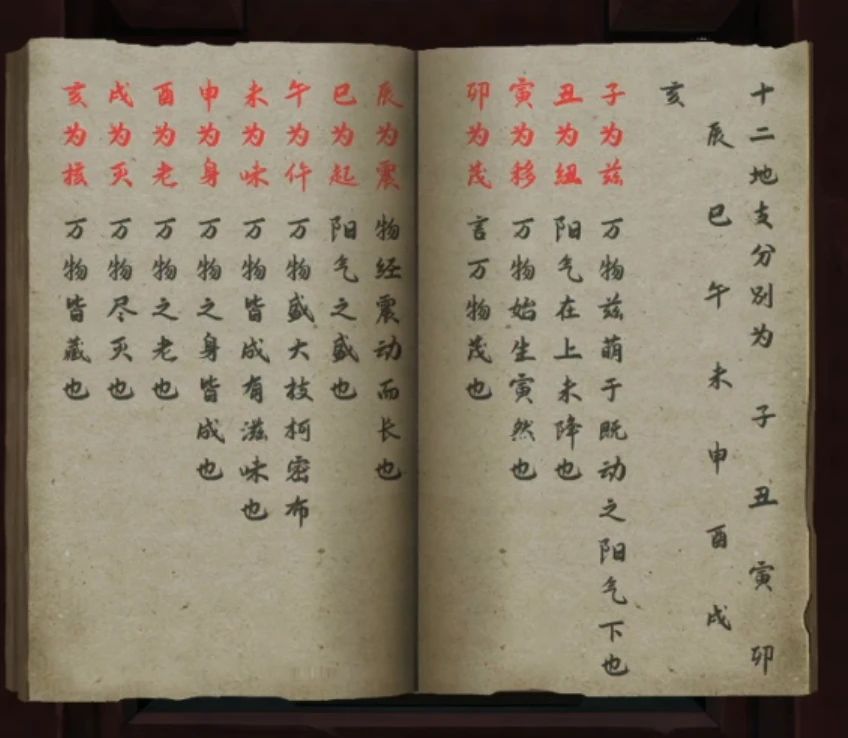 十二地支分别为 子 丑 寅 卯
辰 巳 午 未 申 酉 戌
亥
子为兹 万物兹萌于既动之阳气下也
丑为纽 阳气在上未降也
寅为移 万物始生寅然也
卯为茂 言万物茂也
辰为震 物经震动而长也
巳为起 阳气之盛也
午为仵 万物盛大枝柯密布
未为味 万物皆成有滋味也
申为身 万物之身皆成也
酉为老 万物之老也
戌为灭 万物尽灭也
亥为核 万物皆藏也